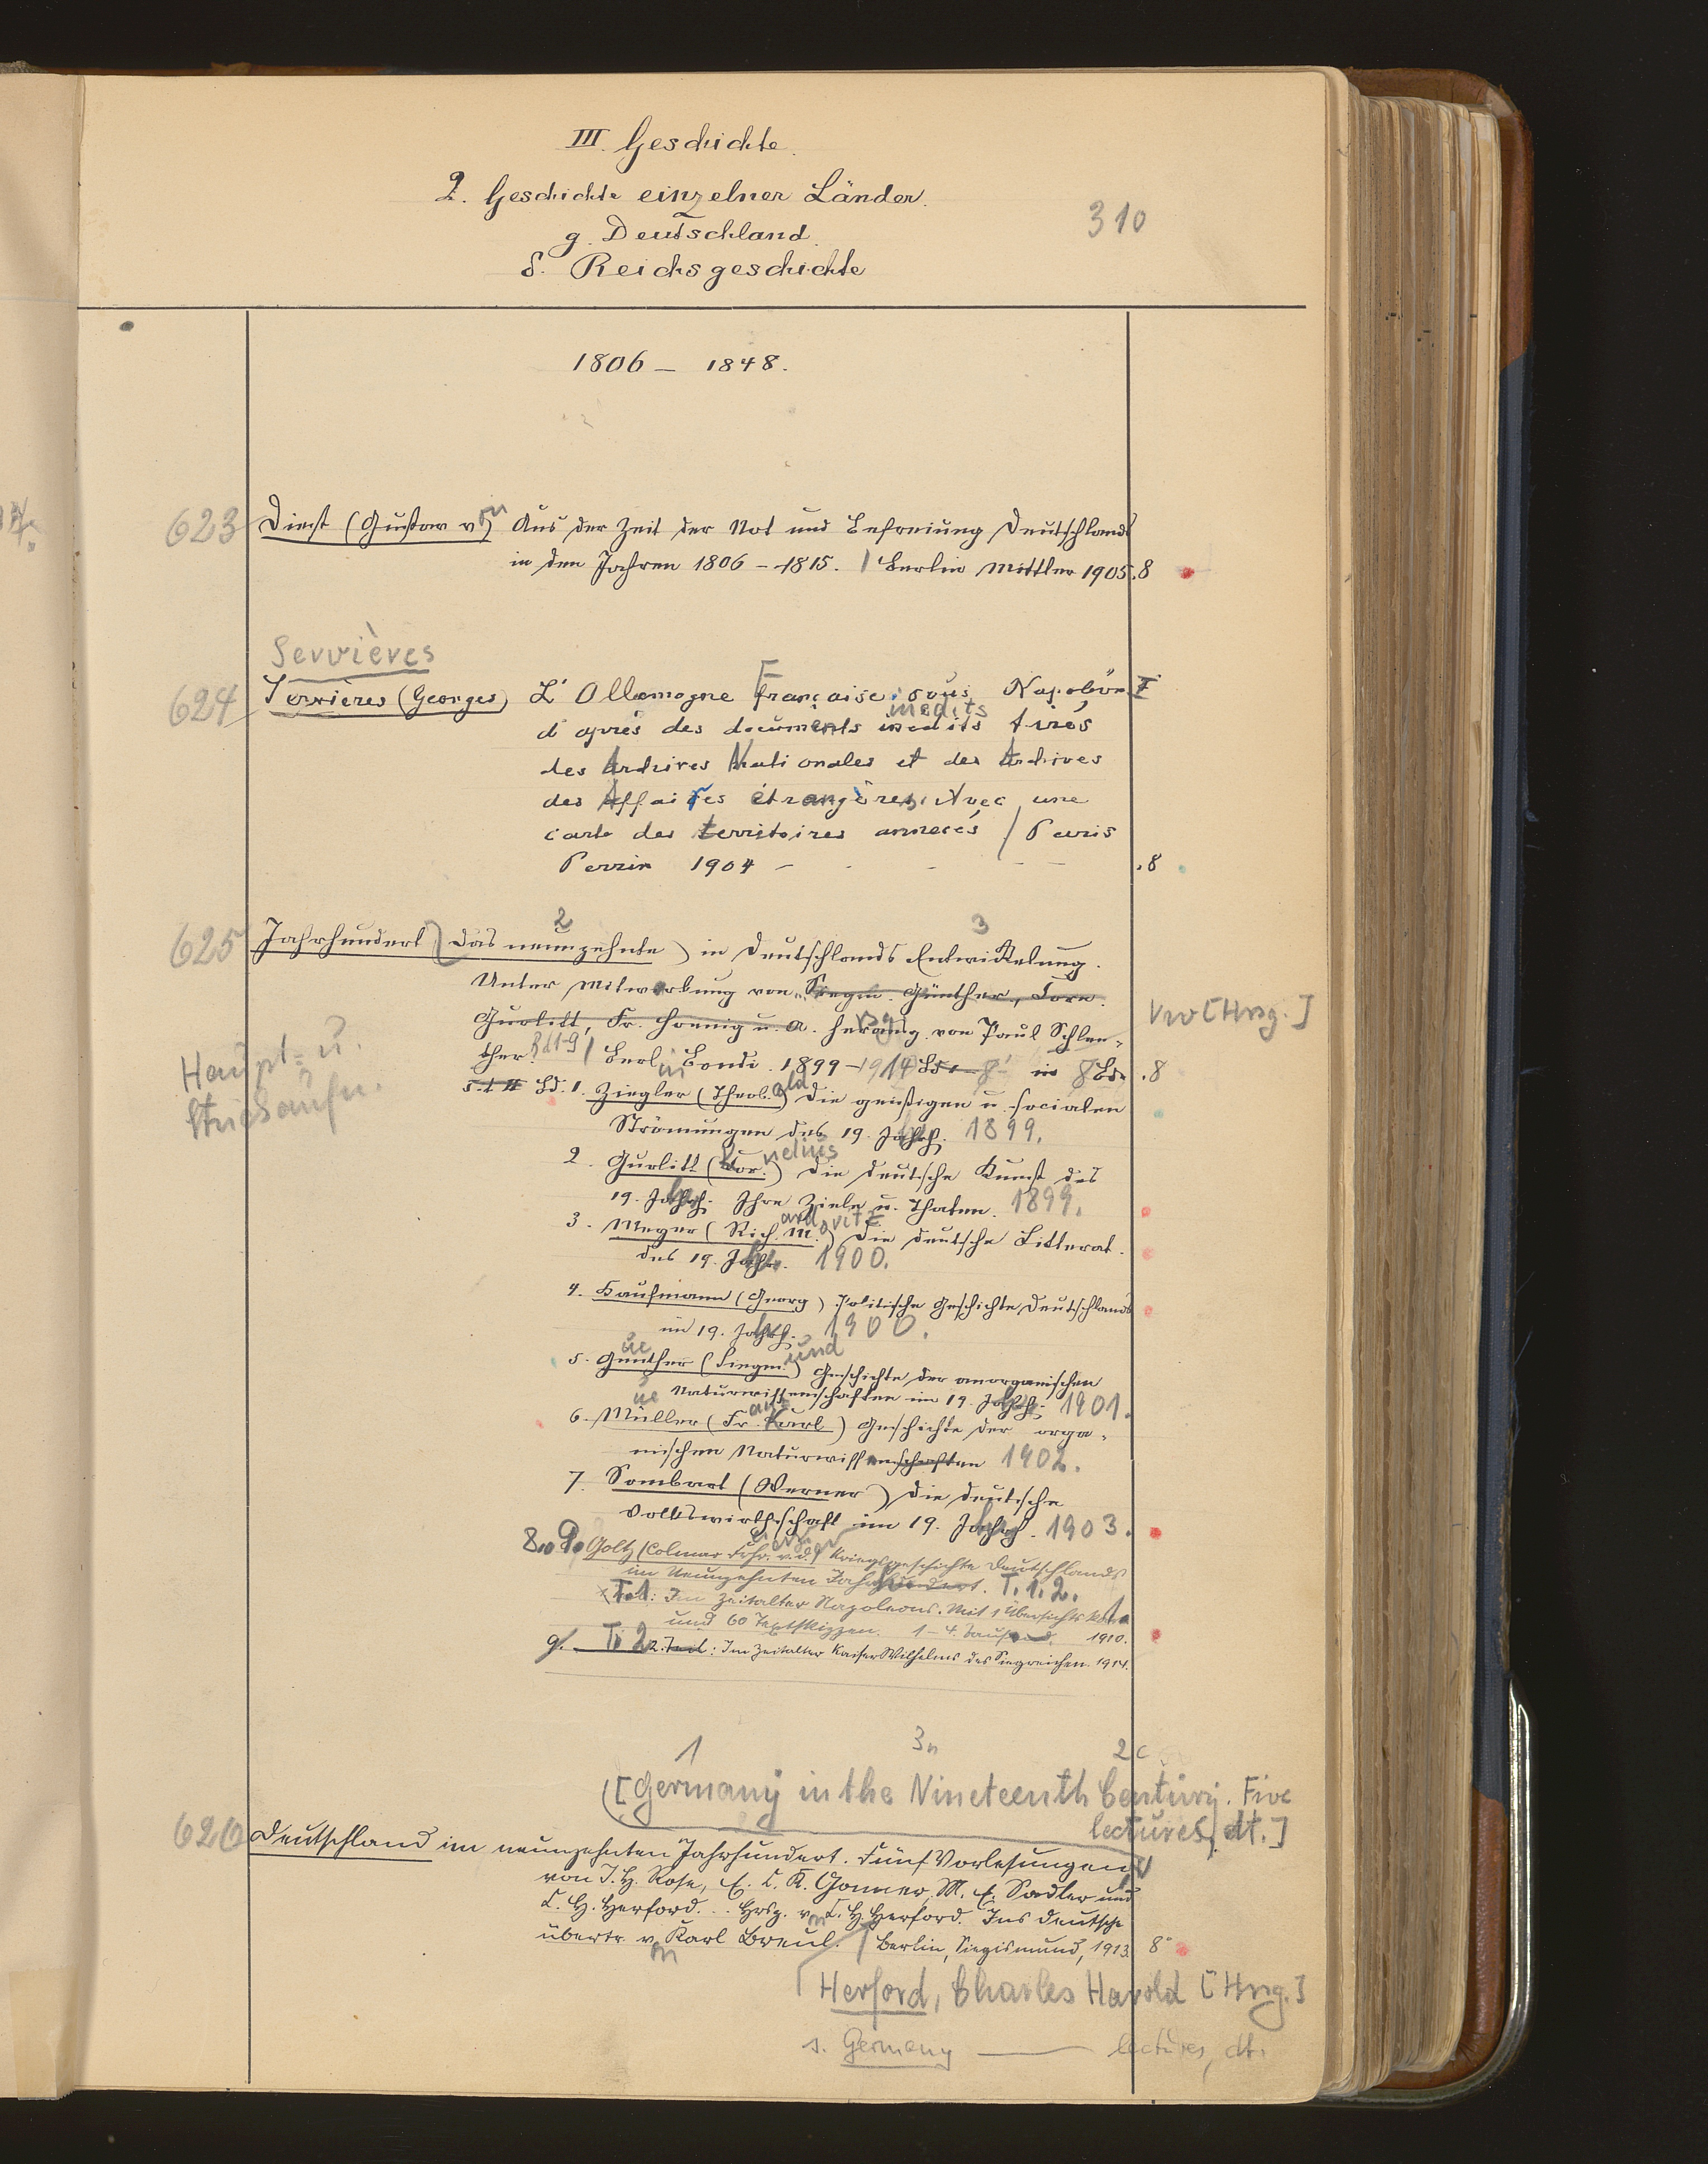 III. Geschichte.
2. Geschichte einzelner Länder.
310
g. Deutschland.
δ. Reichsgeschichte
1806 – 1848.
623 Diest (Gustav von) Aus der Zeit der Not und Befreiung Deutschlands
in den Jahren 1806 – 1815. / Berlin Mittler 1905. 8
Servières
624 Servières (Georges) L'Allemagne Française sous Napoléon I
inedits
d'après des documents inedits tirés
des Archives Nationales et des Archives
des Affaires étrangères. Avec une
carte des territoires annexés / Paris
Perrin 1904 – .8
2 3
625 Jahrhundert (Das neunzehnte) in Deutschlands Entwickelung.
Unter Mitwirkung von Siegm. Günther, Corn.
Gurlitt, Fr. Hoenig u. A. herausg. von Paul Schlen-
Vw [Hrsg.]
ther. Bd 1-9 / Berlin Bondi. 1899 – 1914 Bd 1 – 8 in 8 Bdn .8
Haupt- u.
Stichaufn.
Bd. 1. Ziegler (Theobald) Die geistigen u. socialen
Strömungen des 19. Jahrh. 1899.
2. Gurlitt (Cornelius) Die deutsche Kunst des
19. Jahrh. Ihre Ziele u. Thaten. 1899.
3. Meyer (Richard Moritz) Die deutsche Litterat.
des 19. Jahrh. 1900.
4. Kaufmann (Georg) Politische Geschichte Deutschlands
im 19. Jahrh. 1900.
5. Günther (Siegmund) Geschichte der anorganischen
Naturwissenschaften im 19. Jahrh. 1901.
6. Müller (Franz Karl) Geschichte der orga-
nischen Naturwissenschaften 1902.
7. Sombart (Werner) Die deutsche
Volkswirthschaft im 19. Jahrh. 1903.
8. 9. Goltz (Colmar Frhr. v. d.) Kriegsgeschichte Deutschlands
im Neunzehnten Jahrhundert. T. 1. 2.
T. 1: Im Zeitalter Napoleons. Mit 1 Übersichtskarte
und 60 Textskizzen. 1–4. Tausend. 1910.
9. T. 2 2. Teil: Im Zeitalter Kaiser Wilhelms des Siegreichen. 1914.
1 3 2
[Germany in the Nineteenth Century. Five
lectures, dt.]
626 Deutschland im neunzehnten Jahrhundert. Fünf Vorlesungen
von J. H. Rose, E. C. K. Gonner, M. E. Sadler und
C. H. Herford. .. Hrsg. von C. H. Herford. Ins Deutsche
übertr. von Karl Breul. / Berlin, Siegismund, 1913. 8°
Herford, Charles Harold [Hrsg.]
s. Germany —— lectures, dt.